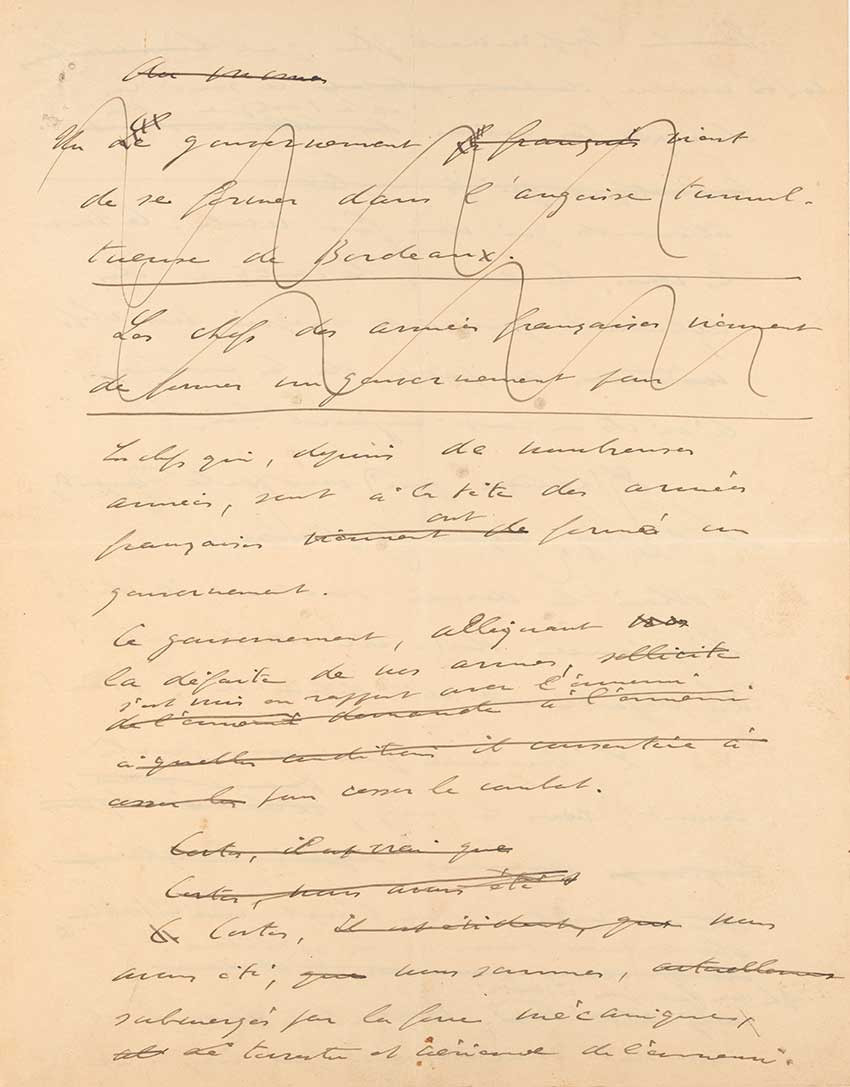 Au moment
Un Le gouvernement français vient
de se former dans l'angoisse tumul-
tueuse de Bordeaux.
Les chefs des armées françaises viennent
de former un gouvernement pour
Les chefs qui, depuis de nombreuses
années, sont à la tête des armées
françaises viennent de ont formé un
gouvernement.
Ce gouvernement, alléguant
la défaite de nos armes, sollicite
s'est mis en rapport avec l'ennemi
de l'ennemi demande à l'ennemi
à quelles conditions il consentira à
cesser les pour cesser le combat.
Certes, il est vrai que
Certes, nous avons été
Certes, il est évident, que nous
avons été, que nous sommes, actuellement
submergés par la force mécanique,
terrestre et aérienne de l'ennemi.